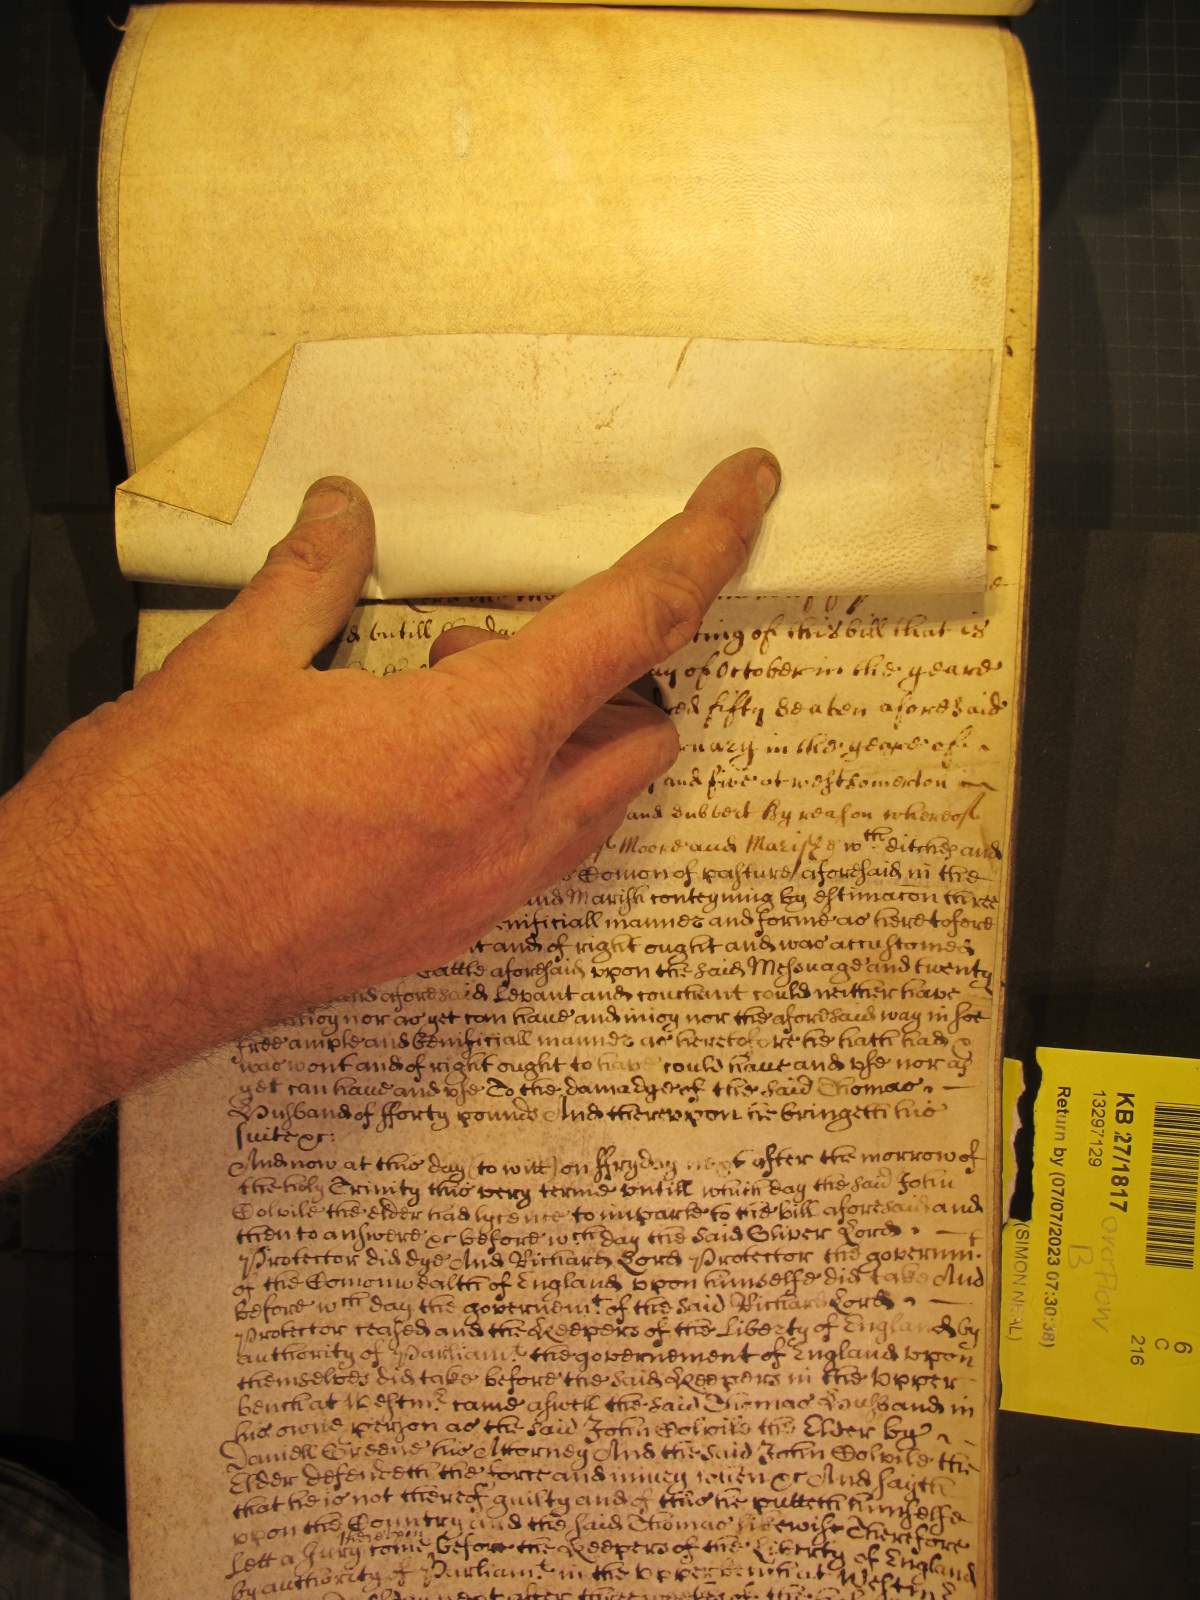 untill the day
ting of this bill that is
ay of October in the yeare
red fifty seaven aforesaid
nuary in the yeare of
and five at westsomerton
and subvert By reason whereof
Moore and Marishe wth ditches and
Comon of pasture aforesaid in the
and Marish conteyning by estimacon three
enificiall manner and forme as heretofore
it and of right ought and was accustomed
Cattle aforesaid upon the said Messuage and twenty
and aforesaid Levant and couchant could neither have
nor as yet can have and injoy nor the aforesaid way in soe
free ample and benificiall manner as heretofore he hath had &
was wont and of right ought to have could have and use nor as
yet can have and use To the damadge of the said Thomas
Husband of fforty pounds And thereupon he bringeth his
suite &c:
And now at this day (to witt) on ffryday next after the morrow of
the holy Trinity this very terme untill which day the said John
Colvile the elder had lycence to imparle to the bill aforesaid and
then to answere &c before wch day the said Oliver Lord
Protector did dye And Richard Lord Protector the governmt
of the Comonwealth of England upon himselfe did take And
before wch day the governemt of the said Richard Lord
Protector ceased and the Keepers of the Liberty of England by
authority of Parliamt the governement of England upon
themselves did take before the said Keepers in the upper
bench at Westmr came aswell the said Thomas Husband in
his owne person as the said John Colvile the Elder by
Daniell Greene his Attorney And the said John Colvile the
Elder defendeth the force and injury when &c And sayth
that he is not thereof guilty and of this he putteth himselfe
upon the Country and the said Thomas likewise Therefore
Lett a Jury thereupon come before the Keepers of the Liberty of England
by authority of Parliamt in the upper bench at Westmr
next after three weekes of the
KB 27/1817
13297129
Return by (07/07/2023 07:30:38)
(SIMON NEAL)
overflow
B
6
C
216